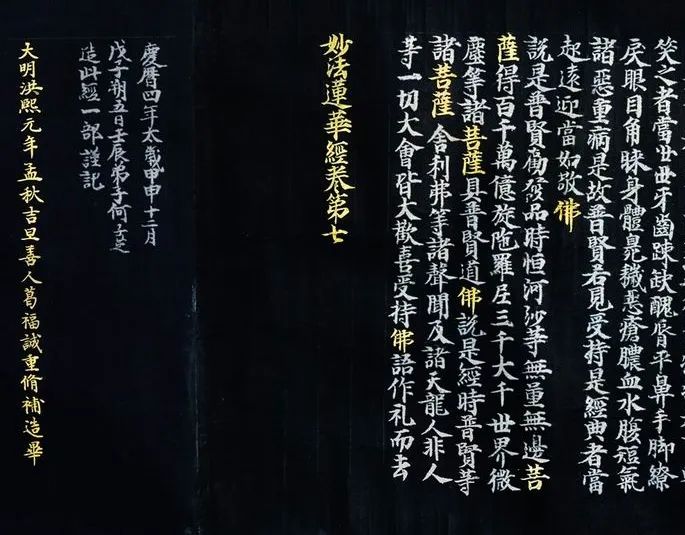 笑之者當世世牙齒踈缺醜脣平鼻手脚繚
戾眼目角睞身體臭穢惡瘡膿血水腹短氣
諸惡重病是故普賢若見受持是經典者當
起遠迎當如敬佛
說是普賢勸發品時恒河沙等無量無邊菩
薩得百千萬億旋陁羅尼三千大千世界微
塵等諸菩薩具普賢道佛說是經時普賢等
諸菩薩舍利弗等諸聲聞及諸天龍人非人
等一切大會皆大歡喜受持佛語作礼而去
妙法蓮華經卷第七
慶曆四年太歲甲申十二月
戊子朔五日壬辰弟子何子芝
造此經一部謹記
大明洪熙元年孟秋吉旦善人葛福誠重脩補造畢